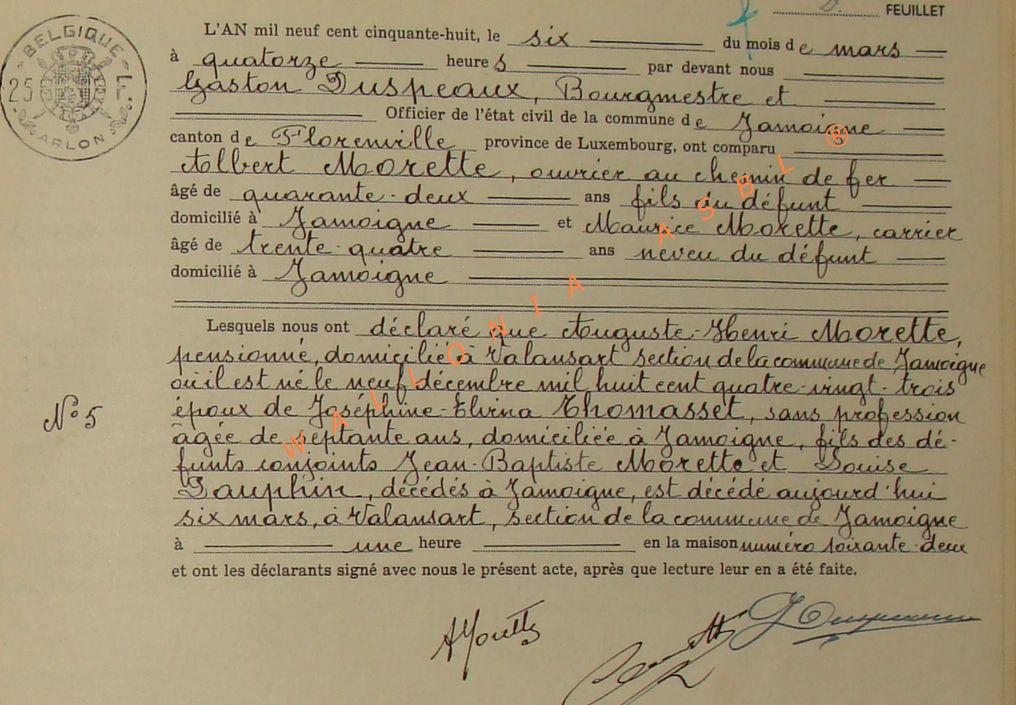 FEUILLET
BELGIQUE
25
ARLON
L'AN mil neuf cent cinquante-huit, le six du mois de mars
à quatorze heures par devant nous
Gaston Duspeaux, Bourgmestre et
Officier de l'état civil de la commune de Jamoigne
canton de Florenville province de Luxembourg, ont comparu
Albert Morette, ouvrier au chemin de fer
âgé de quarante-deux ans fils du défunt
domicilié à Jamoigne et Maurice Morette, carrier
âgé de trente-quatre ans neveu du défunt
domicilié à Jamoigne
Lesquels nous ont déclaré que Auguste-Henri Morette,
pensionné, domicilié à Valansart section de la commune de Jamoigne
où il est né le neuf décembre mil huit cent quatre-vingt-trois
N° 5
époux de Joséphine-Elvina Thomasset, sans profession
âgée de septante ans, domiciliée à Jamoigne, fils des dé-
funts conjoints Jean-Baptiste Morette et Louise
Dauphin, décédés à Jamoigne, est décédé aujourd'hui
six mars, à Valansart, section de la commune de Jamoigne
à une heure en la maison numéro soixante-deux
et ont les déclarants signé avec nous le présent acte, après que lecture leur en a été faite.
WALLONIA ASBL ©